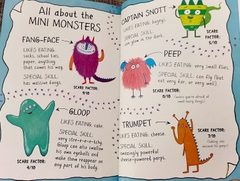 All about the
MINI MONSTERS
FANG-FACE
LIKES EATING:
socks, school ties,
paper, anything
that comes his way.
SPECIAL SKILL:
has massive fangs.
SCARE FACTOR:
9/10
GLOOP
LIKES EATING: cake.
SPECIAL SKILL:
very stre-e-e-tchy.
Gloop can also swallow
his own eyeballs and
make them reappear on
any part of his body.
SCARE FACTOR:
4/10
CAPTAIN SNOTT
LIKES EATING:
SPECIAL SKILL:
can glow in the dark.
SCARE FACTOR:
5/10
PEEP
LIKES EATING: very small flies.
SPECIAL SKILL: can fly (but
not very far, or very well).
SCARE FACTOR:
0/10
TRUMPET
LIKES EATING: cheese.
SPECIAL SKILL:
amazingly powerful
cheese-powered parps.
SCARE FACTOR:
7/10